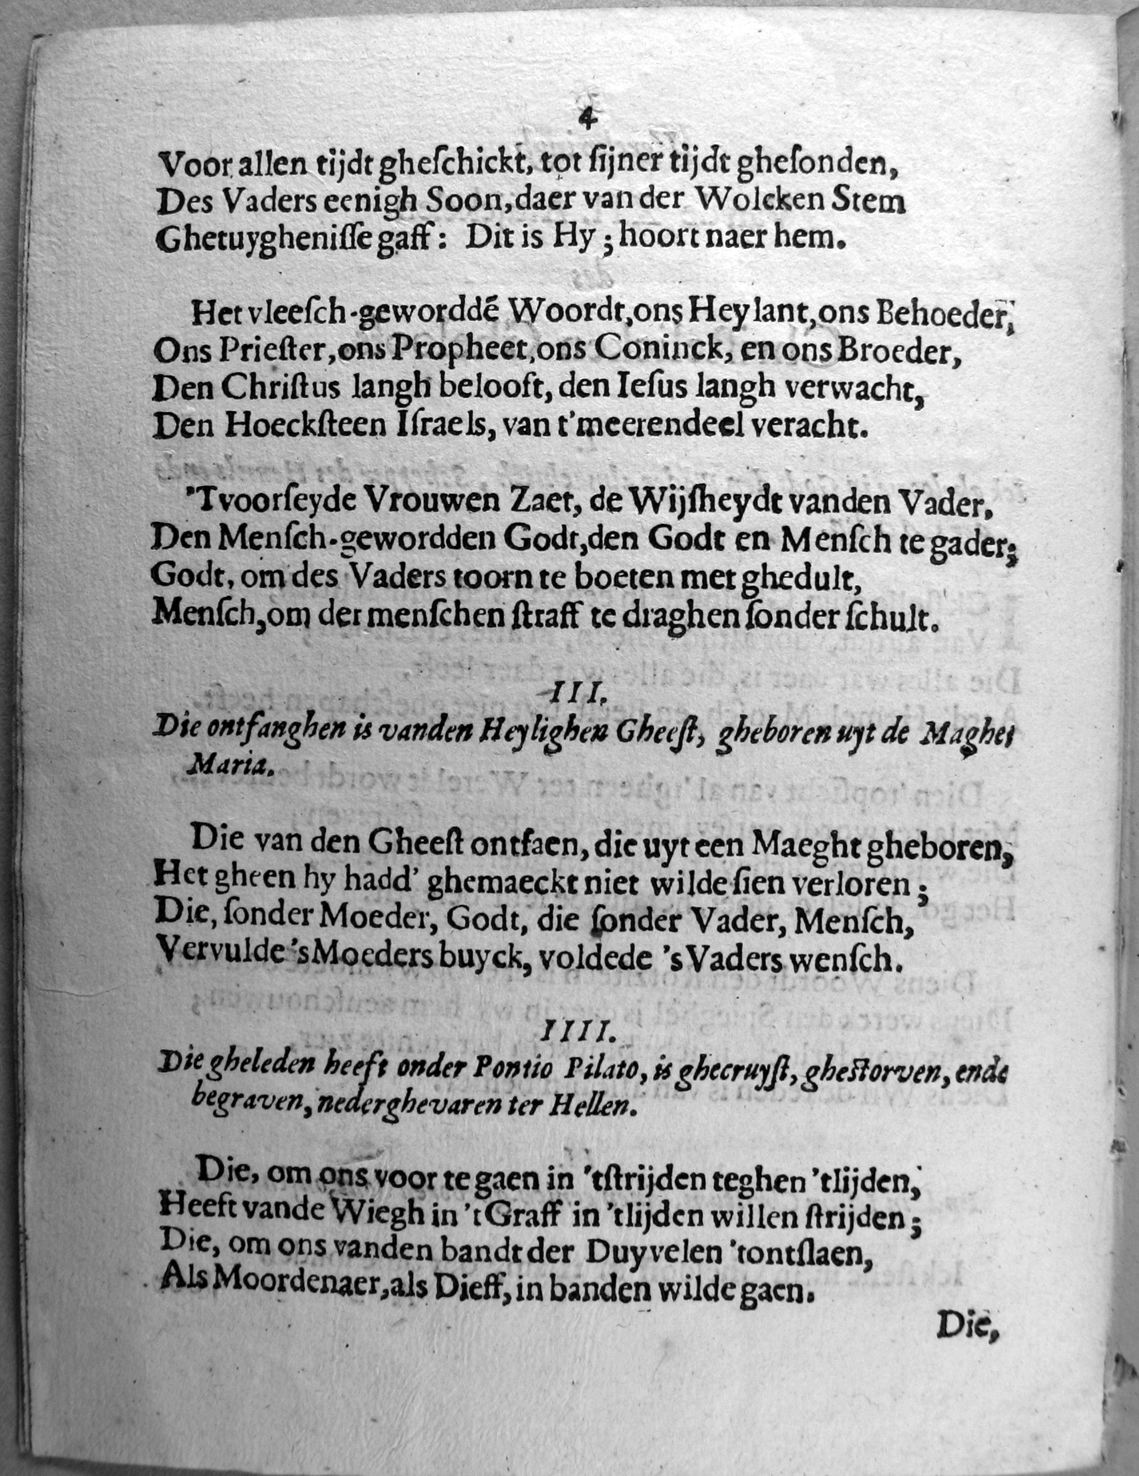 4
Voor allen tijdt gheſchickt, tot ſijner tijdt gheſonden,
Des Vaders eenigh Soon, daer van der Wolcken Stem
Ghetuygheniſſe gaff: Dit is Hy; hoort naer hem.
Het vleeſch-geworddẽ Woordt, ons Heylant, ons Behoeder,
Ons Prieſter, ons Propheet, ons Coninck, en ons Broeder,
Den Chriſtus langh belooft, den Ieſus langh verwacht,
Den Hoeckſteen Iſraels, van t'meerendeel veracht.
'Tvoorſeyde Vrouwen Zaet, de Wijſheydt vanden Vader,
Den Menſch-gewordden Godt, den Godt en Menſch te gader;
Godt, om des Vaders toorn te boeten met ghedult,
Menſch, om der menſchen ſtraff te draghen ſonder ſchult.
III.
Die ontfanghen is vanden Heylighen Gheeſt, gheboren uyt de Maghet
Maria.
Die van den Gheeſt ontfaen, die uyt een Maeght gheboren,
Het gheen hy hadd' ghemaeckt niet wilde ſien verloren;
Die, ſonder Moeder, Godt, die ſonder Vader, Menſch,
Vervulde 'sMoeders buyck, voldede 's Vaders wenſch.
IIII.
Die gheleden heeft onder Pontio Pilato, is ghecruyſt, gheſtorven, ende
begraven, nederghevaren ter Hellen.
Die, om ons voor te gaen in 'tſtrijden teghen 'tlijden,
Heeft vande Wiegh in 't Graff in 'tlijden willen ſtrijden;
Die, om ons vanden bandt der Duyvelen 'tontſlaen,
Als Moordenaer, als Dieff, in banden wilde gaen.
Die,